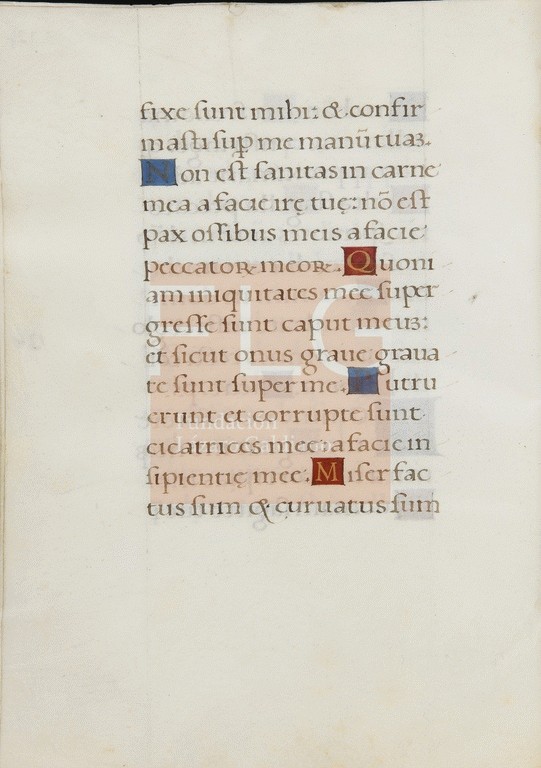 fixe sunt mihi: & confir
masti sup me manū tuaꝫ.
Non est sanitas in carne
mea a facie irę tuę: nō est
pax ossibus meis a facie
peccatoꝝ meoꝝ. Quoni
am iniquitates mee super
gresse sunt caput meuꝫ:
et sicut onus graue graua
te sunt super me. Putru
erunt et corrupte sunt
cicatrices mee: a facie in
sipientię mee. Miser fac
tus sum & curuatus sum
FLG
Fundación
Lázaro Galdiano